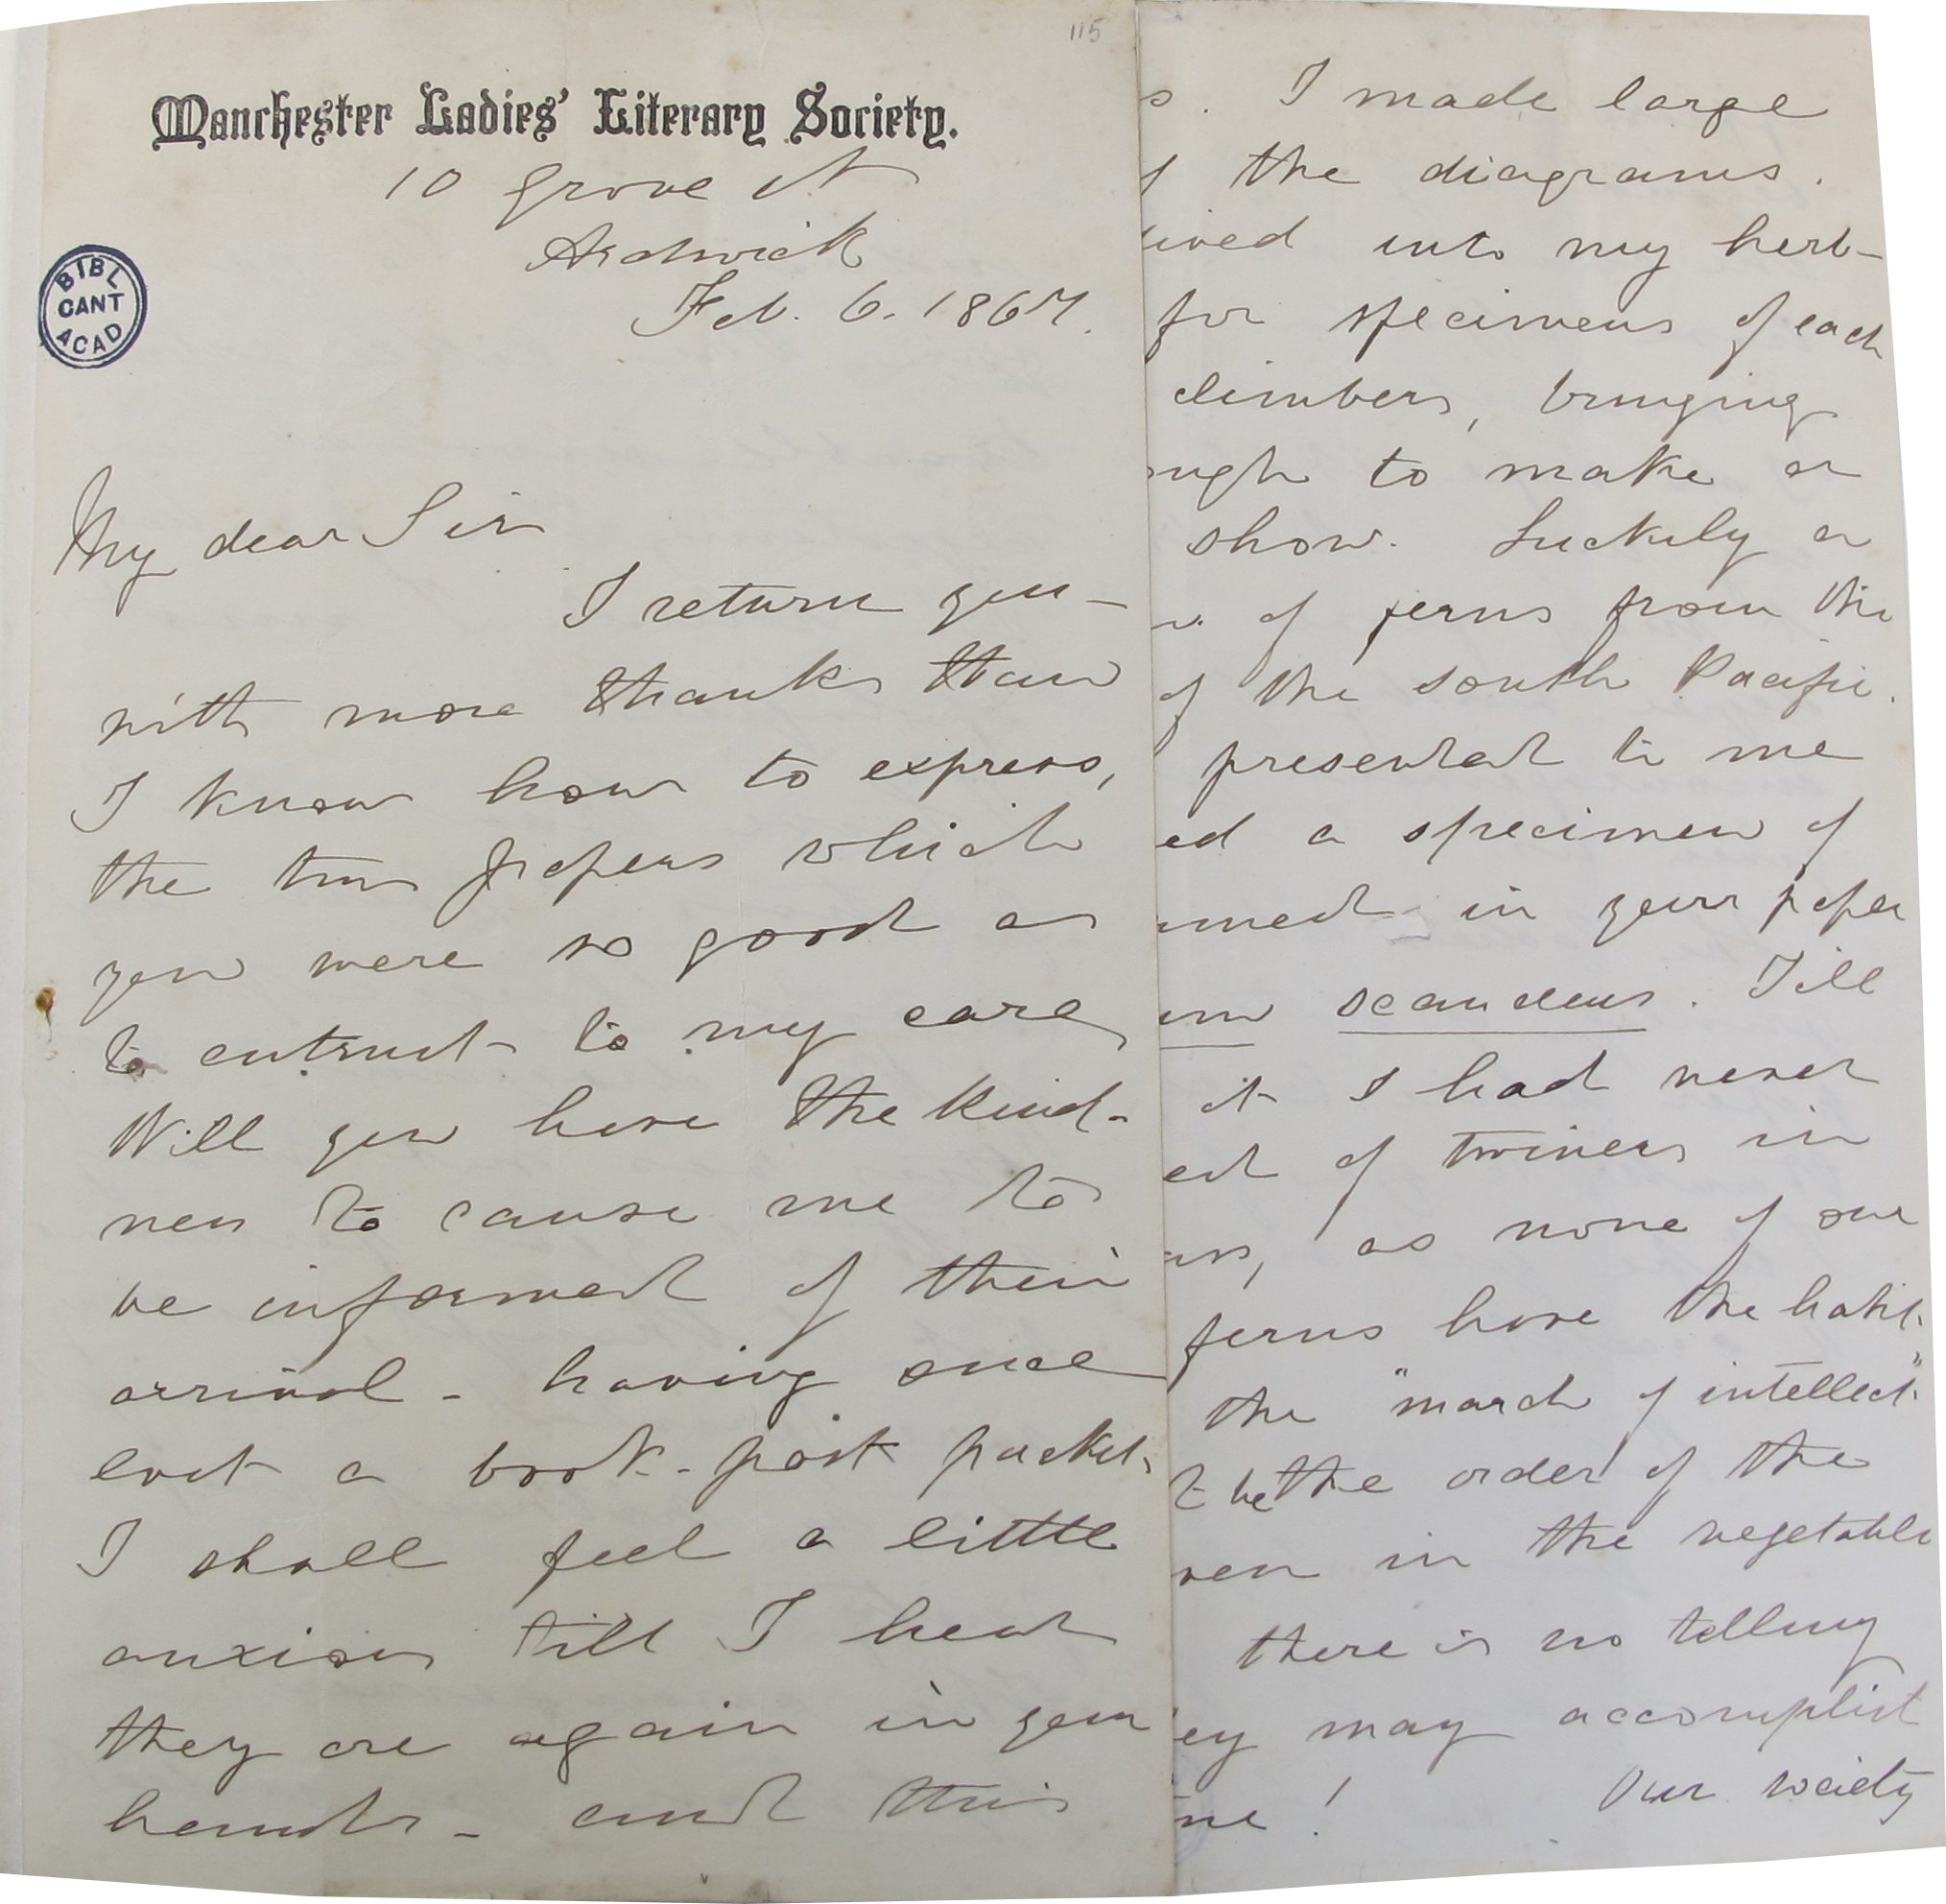 115
Manchester Ladies' Literary Society.
10 Grove St
Ardwick
Feb. 6. 1867.
BIBL
CANT
ACAD
My dear Sir
I return you –
with more thanks than
I know how to express,
the two papers which
you were so good as
to entrust to my care
Will you have the kind-
ness to cause me to
be informed of their
arrival – having once
lost a book-post packet,
I shall feel a little
anxious till I hear
they are again in your
hands – and this
s. I made large
the diagrams.
ived into my herb-
for specimens of each
climbers, bringing
ough to make a
show. Luckily a
of ferns from the
of the south Pacific.
presented to me
ed a specimen of
med in your paper
um scandens. Till
it I had never
ed of twiners in
ns, as none of our
ferns have the habit.
the "march of intellect"
be the order of the
ven in the vegetable
there is no telling
ey may accomplish
me! Our society